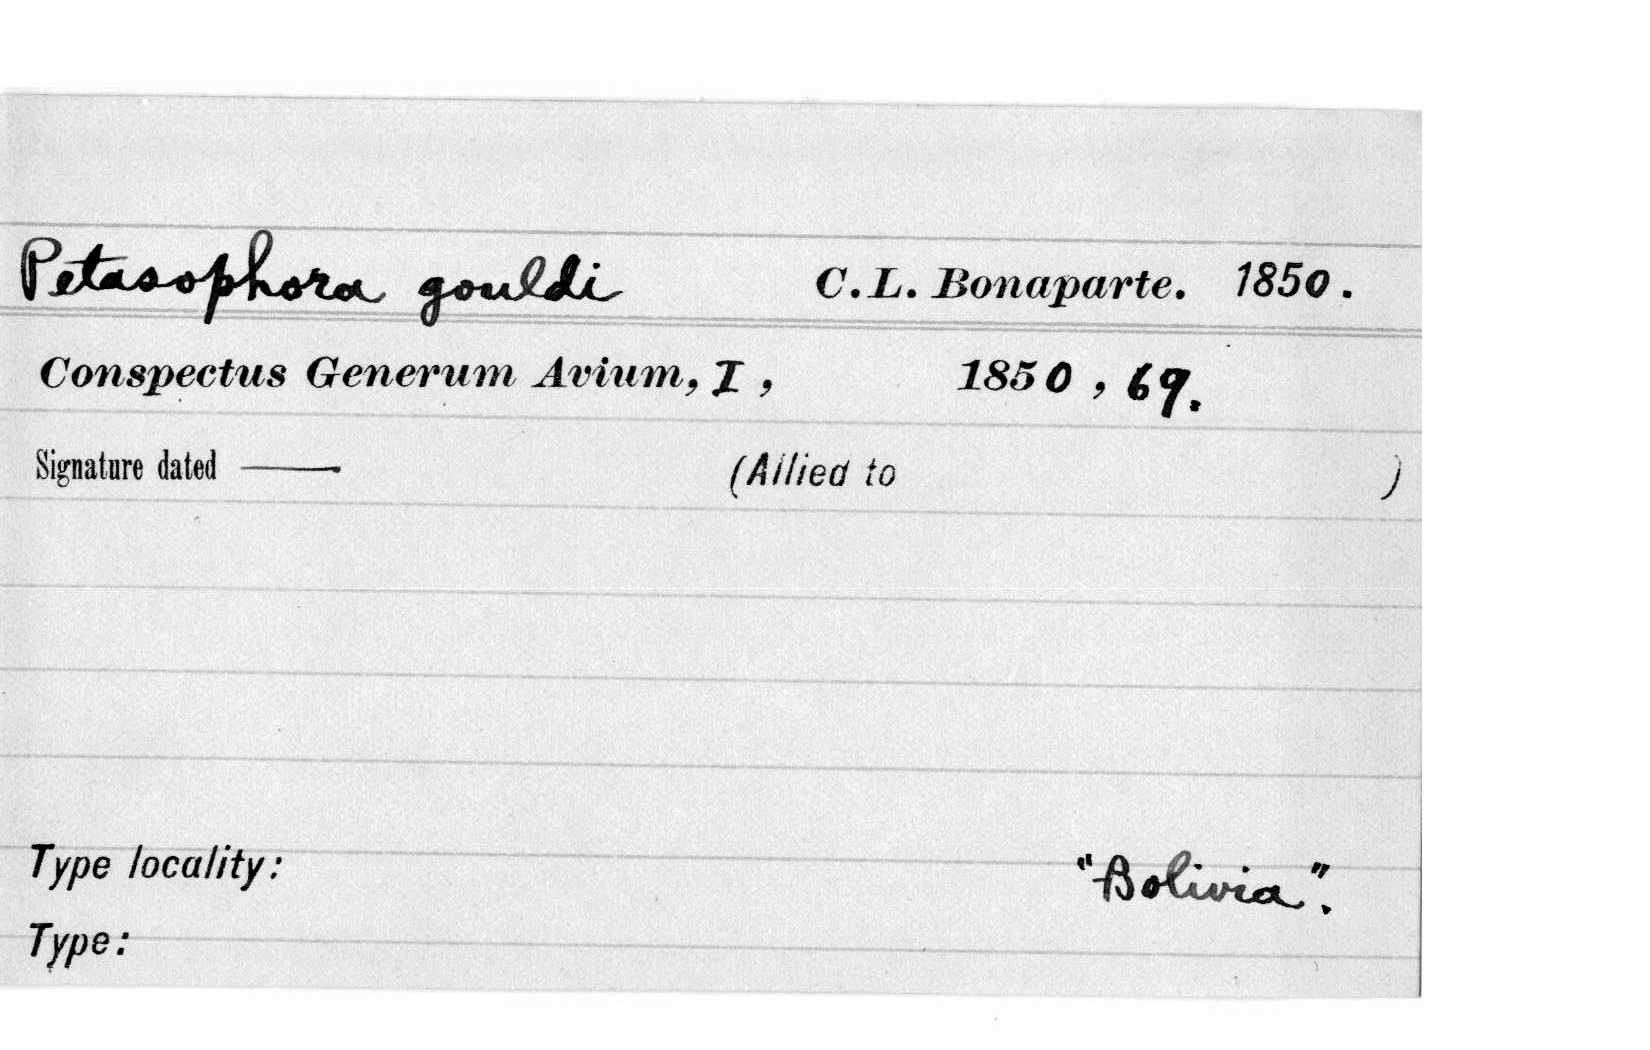 Petasophora gouldi C.L. Bonaparte. 1850.
Conspectus Generum Avium, I, 1850, 69.
Signature dated — (Allied to )
Type locality: "Bolivia".
Type: